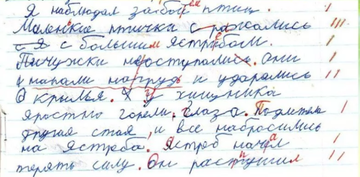 Я наблюдал за боем птиц.
Маленькие птички сражались
с большим ястребом.
Пичужки наступали. Они
напали на грудь и ударялись
в крылья. У хищника
яростно горели глаза. Подлетела
другая стая, и все набросились
на ястреба. Ястреб начал
терять силу. Он распушил